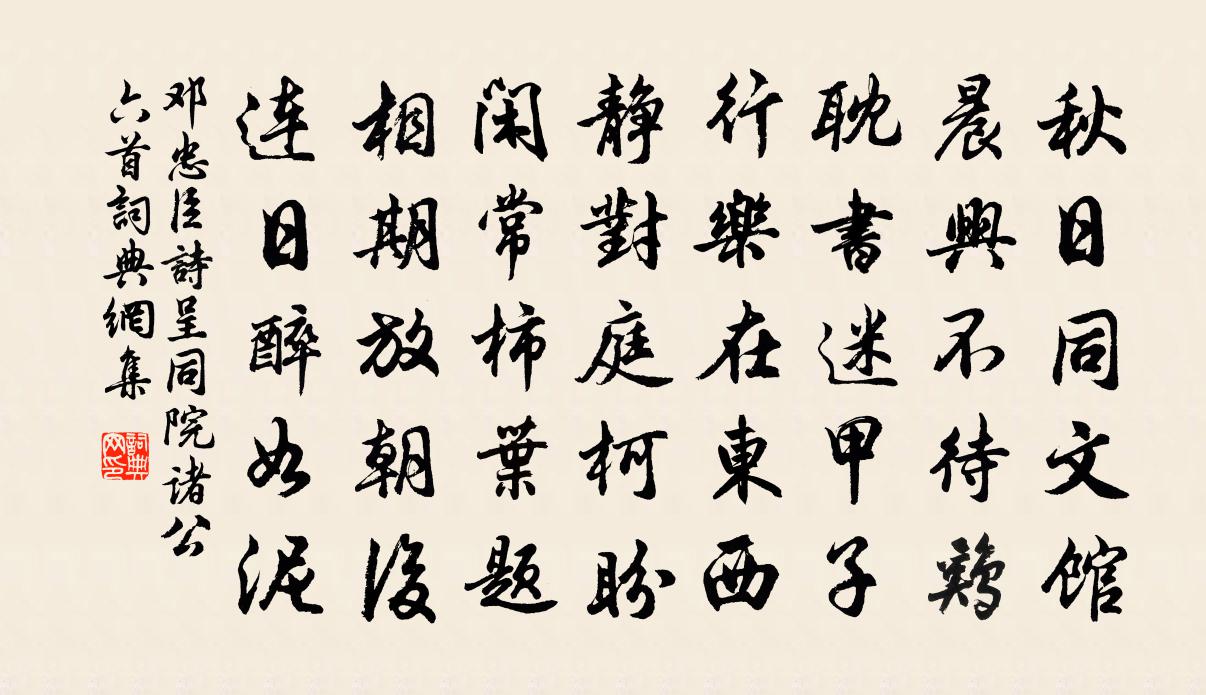 秋日同文館
晨興不待鷄
耽書迷甲子
行樂在東西
靜對庭柯盼
閑常柿葉題
相期放朝後
連日醉如泥
邓忠臣詩呈同院诸公
六首詞典網集
詞典网印